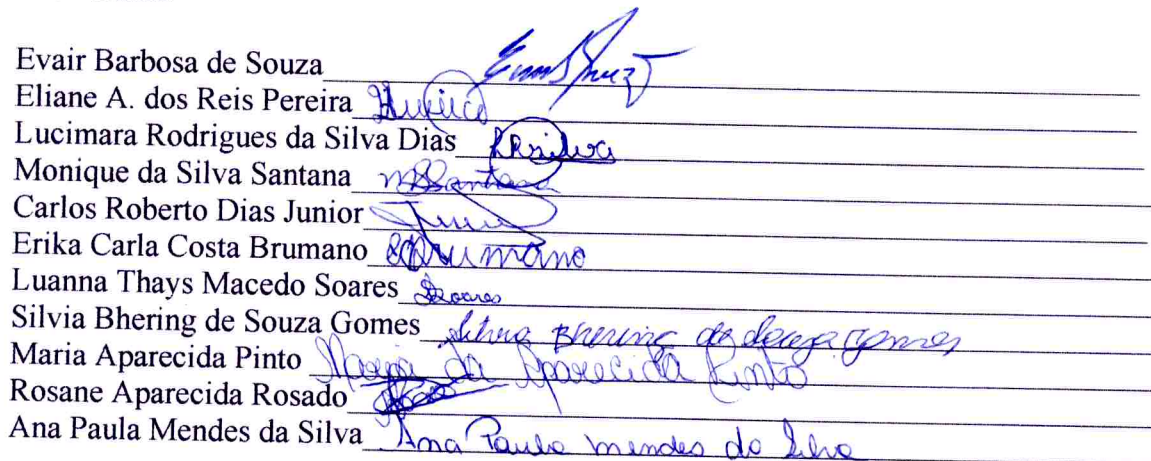 Evair Barbosa de Souza
Eliane A. dos Reis Pereira
Lucimara Rodrigues da Silva Dias LRSilva
Monique da Silva Santana MSSantana
Carlos Roberto Dias Junior
Erika Carla Costa Brumano ECBrumano
Luanna Thays Macedo Soares Soares
Silvia Bhering de Souza Gomes Silvia Bhering de Souza Gomes
Maria Aparecida Pinto Maria da Aparecida Pinto
Rosane Aparecida Rosado
Ana Paula Mendes da Silva Ana Paula Mendes da Silva